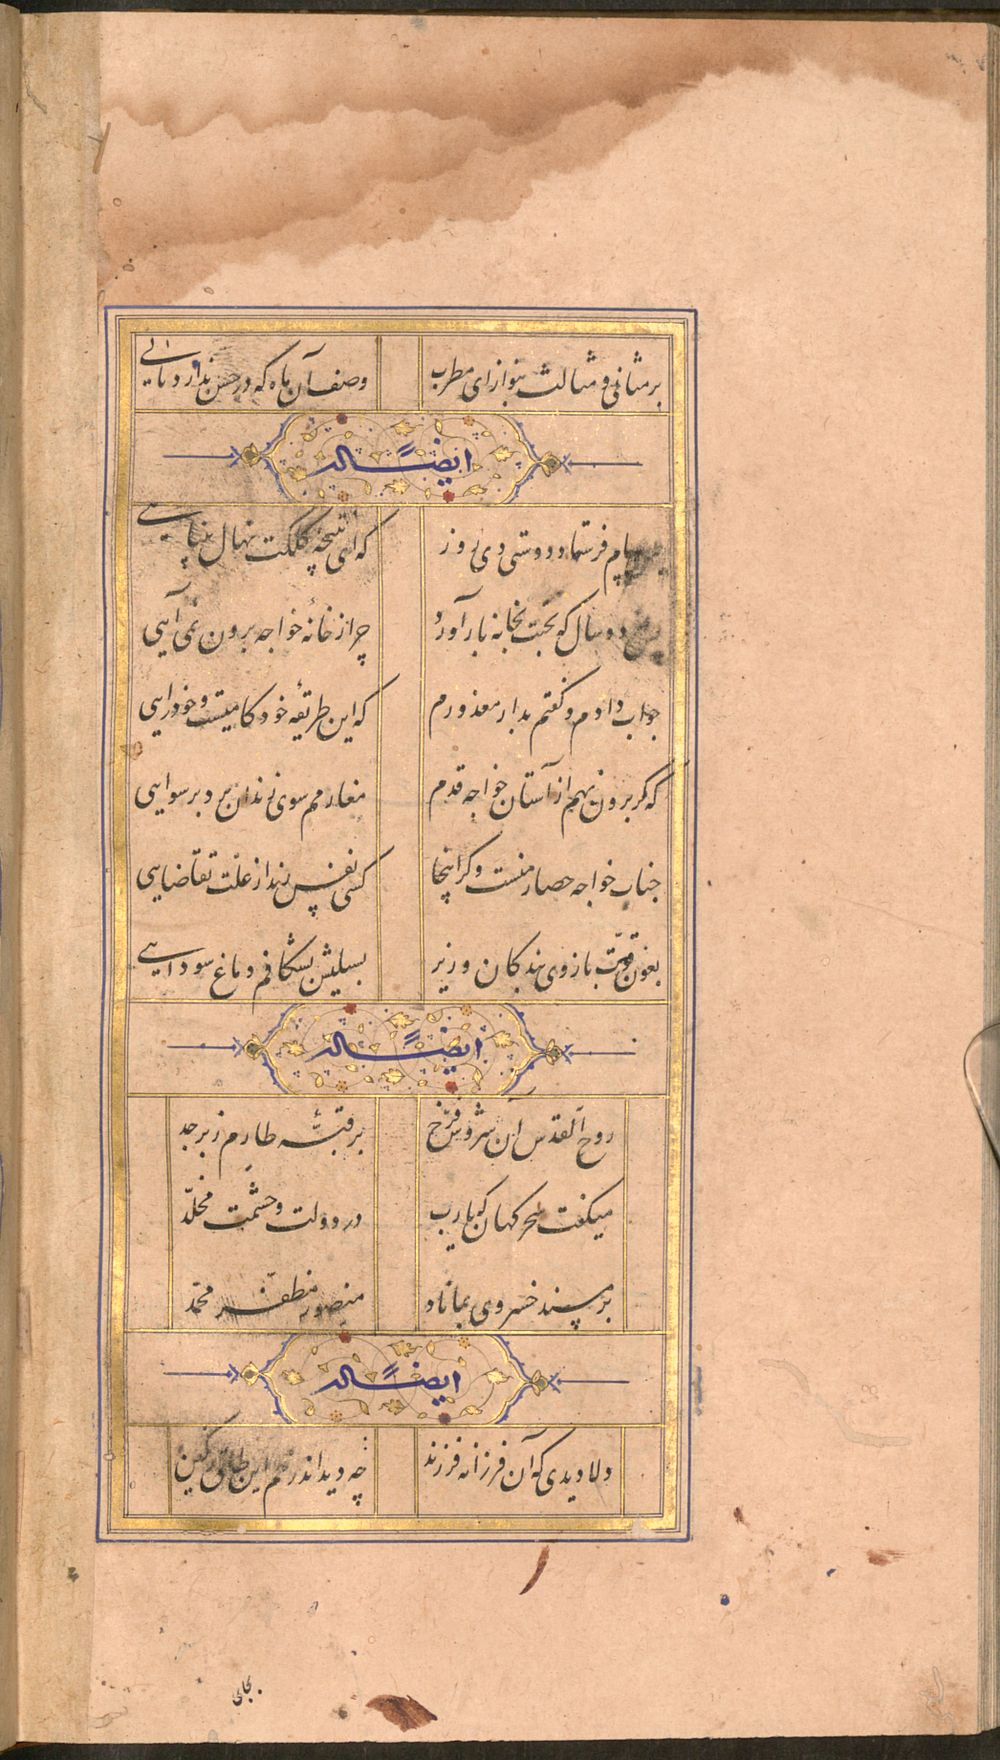 بر مثانی و مثالث بنواز ای مطرب وصف آن ماه که در حسن ندارد ثانی
ایضاً له
پیام فرستاد دوستی دی روز که ای نتیجه کلکت نهال بینایی
پس از دو سال که بختت بخانه باز آورد چرا ز خانهٔ خواجه برون نمی آیی
جواب دادم و گفتم بدار معذورم که این طریقه خودکامیست و خودرایی
که گر برون نهم از آستان خواجه قدم سوی زندان برد برسوایی
جناب خواجه حصار منست و گر اینجا کسی نفس زند از علّت تقاضایی
بعون قوّت بازوی بندکان وزیر بسیلیش بشکافم دماغ سودایی
ایضاً له
روح القدس آن سروش فرّخ بر قبّهٔ طارم زبرجد
میکفت سحر کهان که یا رب در دولت و حشمت مخلّد
بر مسند خسروی بماناد منصور مظفّر محمّد
ایضاً له
دلا دیدی که آن فرزانه فرزند چه دید اندر خم این طاق رنگین
بجای